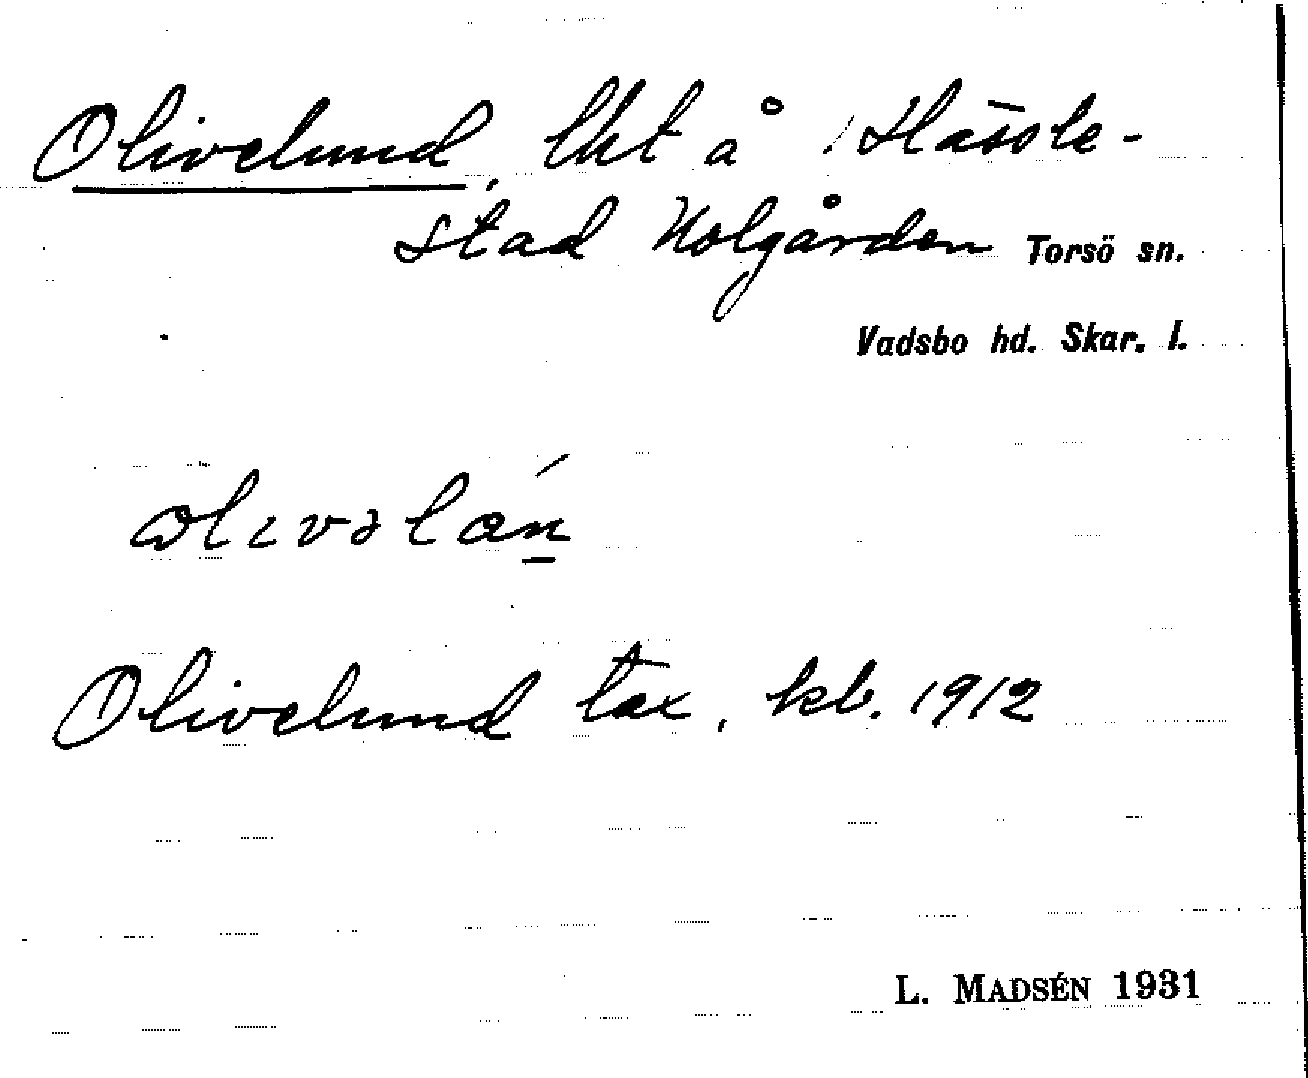 Olivelund, lht å Hässle-
stad Nolgården Torsö sn.
Vadsbo hd. Skar. l.
Olivelund tax, kb. 1912
L. MADSÉN 1931